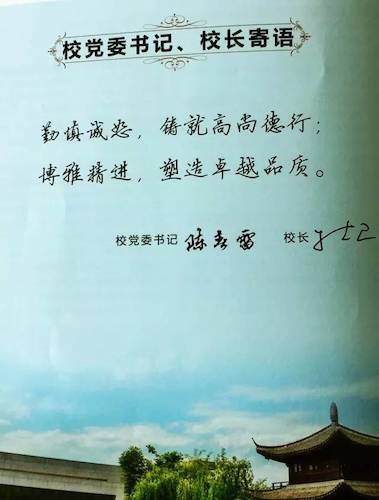 校党委书记、校长寄语
勤慎诚恕，铸就高尚德行；
博雅精进，塑造卓越品质。
校党委书记 陈春雷 校长